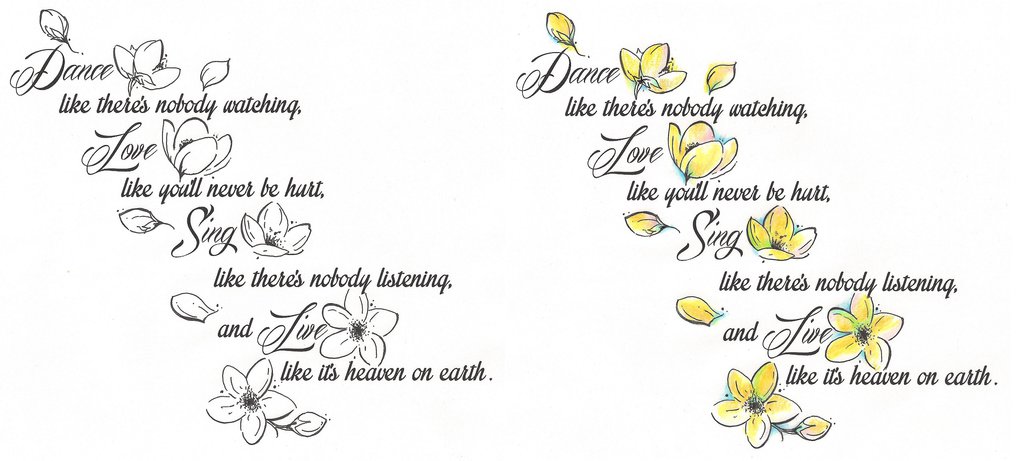 Dance
like there's nobody watching,
Love
like you'll never be hurt,
Sing
like there's nobody listening,
and Live
like it's heaven on earth.
Dance
like there's nobody watching,
Love
like you'll never be hurt,
Sing
like there's nobody listening,
and Live
like it's heaven on earth.